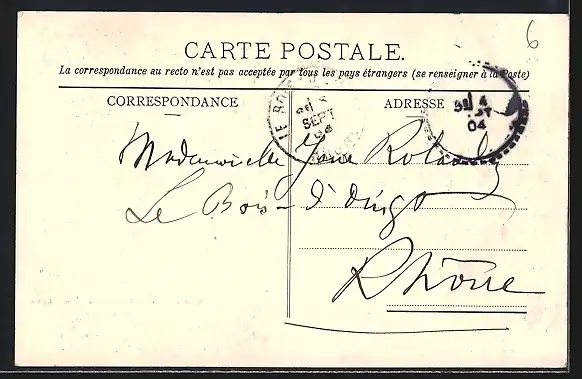 6
CARTE POSTALE.
La correspondance au recto n'est pas acceptée par tous les pays étrangers (se renseigner à la Poste)
CORRESPONDANCE
ADRESSE
LE BOIS
SEPT
04
4
04
Mademoiselle
Le Bois-d'Oingt
Rhône